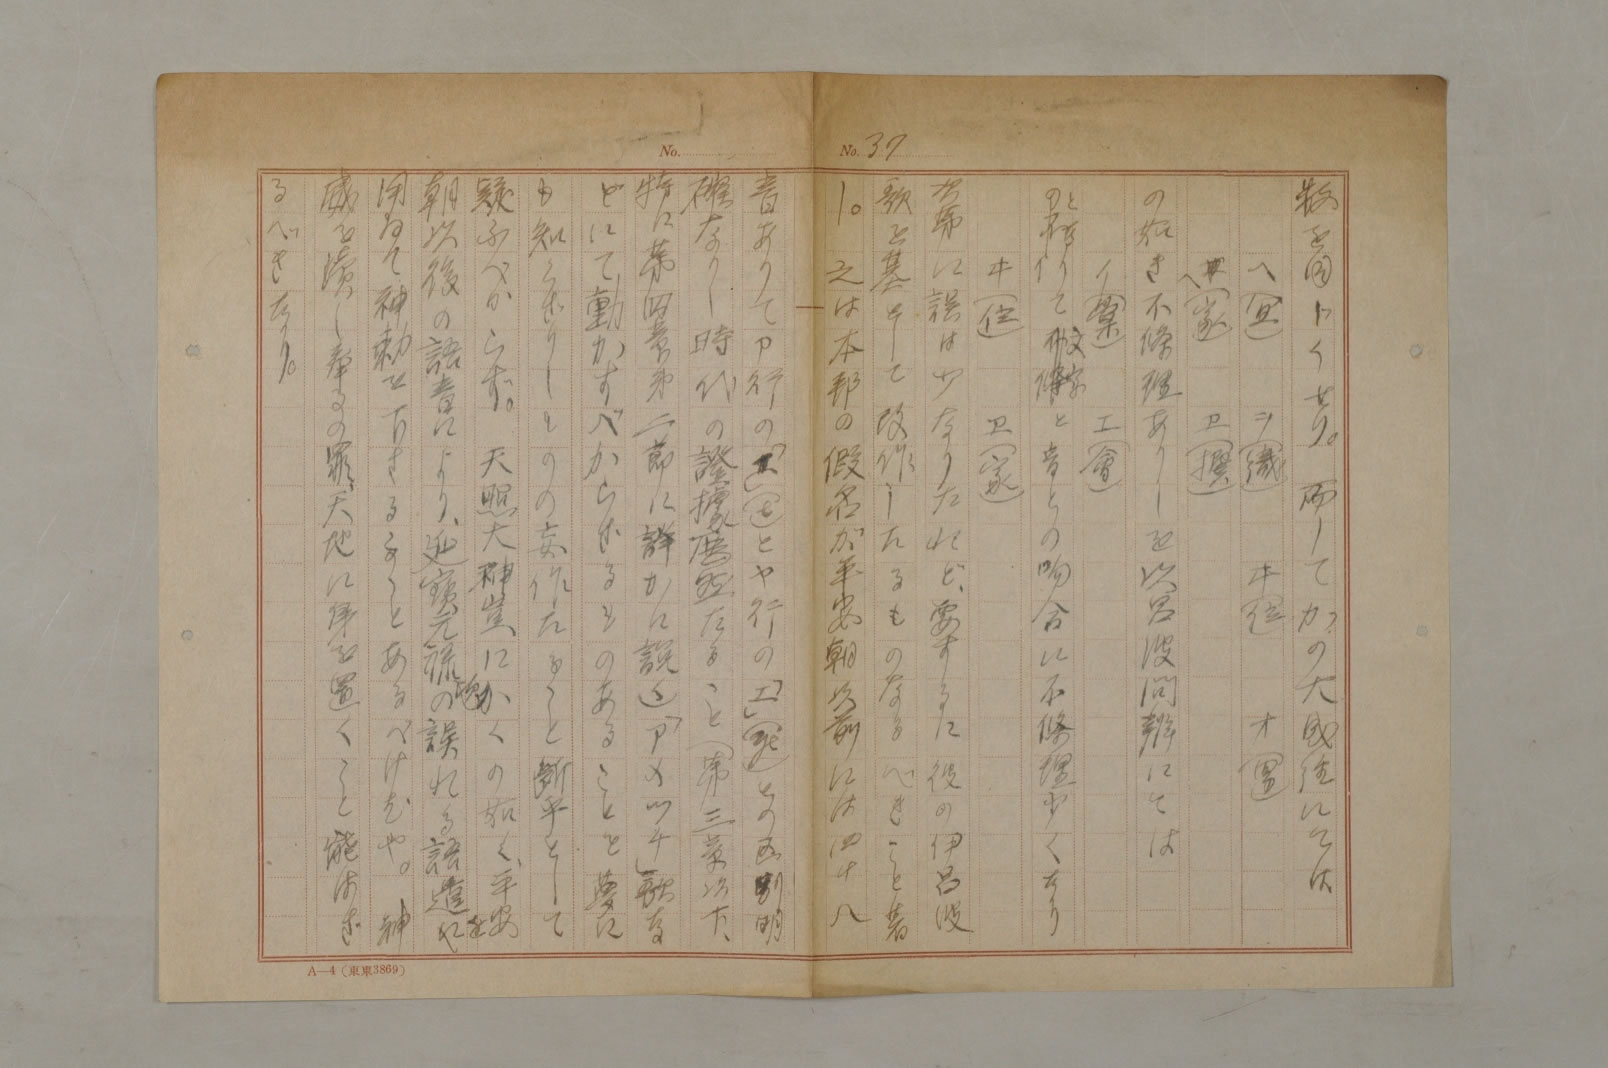 No. 37
No.
數を図トイせり。而してかの大成経にては
ヘ(宜) シ(織) ヰ(位) オ(思)
ヘ(家) ヱ(撰)
の如き不條理ありしを次呂波問辨にては
となりて文字と音との吻合に不條理少くなり
イ(業) エ(會)
ヰ(位) ヱ(家)
次第に誤は少なりたれど、要するに後の伊呂波
歌を基として改作したるものなるべきこと著
し。之は本邦の假名が平安朝以前には四十八
音ありてア行の「エ」とヤ行の「エ」との区別明
確なりし時代の證據歴然たること(第三章以下、
特に第四章第二節に詳かに説く「アメツチ」歌な
どにて動かすべからざるものあることを夢に
も知らざりしものの妄作たること断乎として
疑ふべからず。天照大神豈にかくの如く、平安
朝以後の語音により、延寶元祿頃の誤れる語遣を
用ゐて神勅を下さるることあるべけむや。神
威を瀆し奉るの罪、天地に身を置くこと能はざ
るべきなり。
A—4(東東3869)